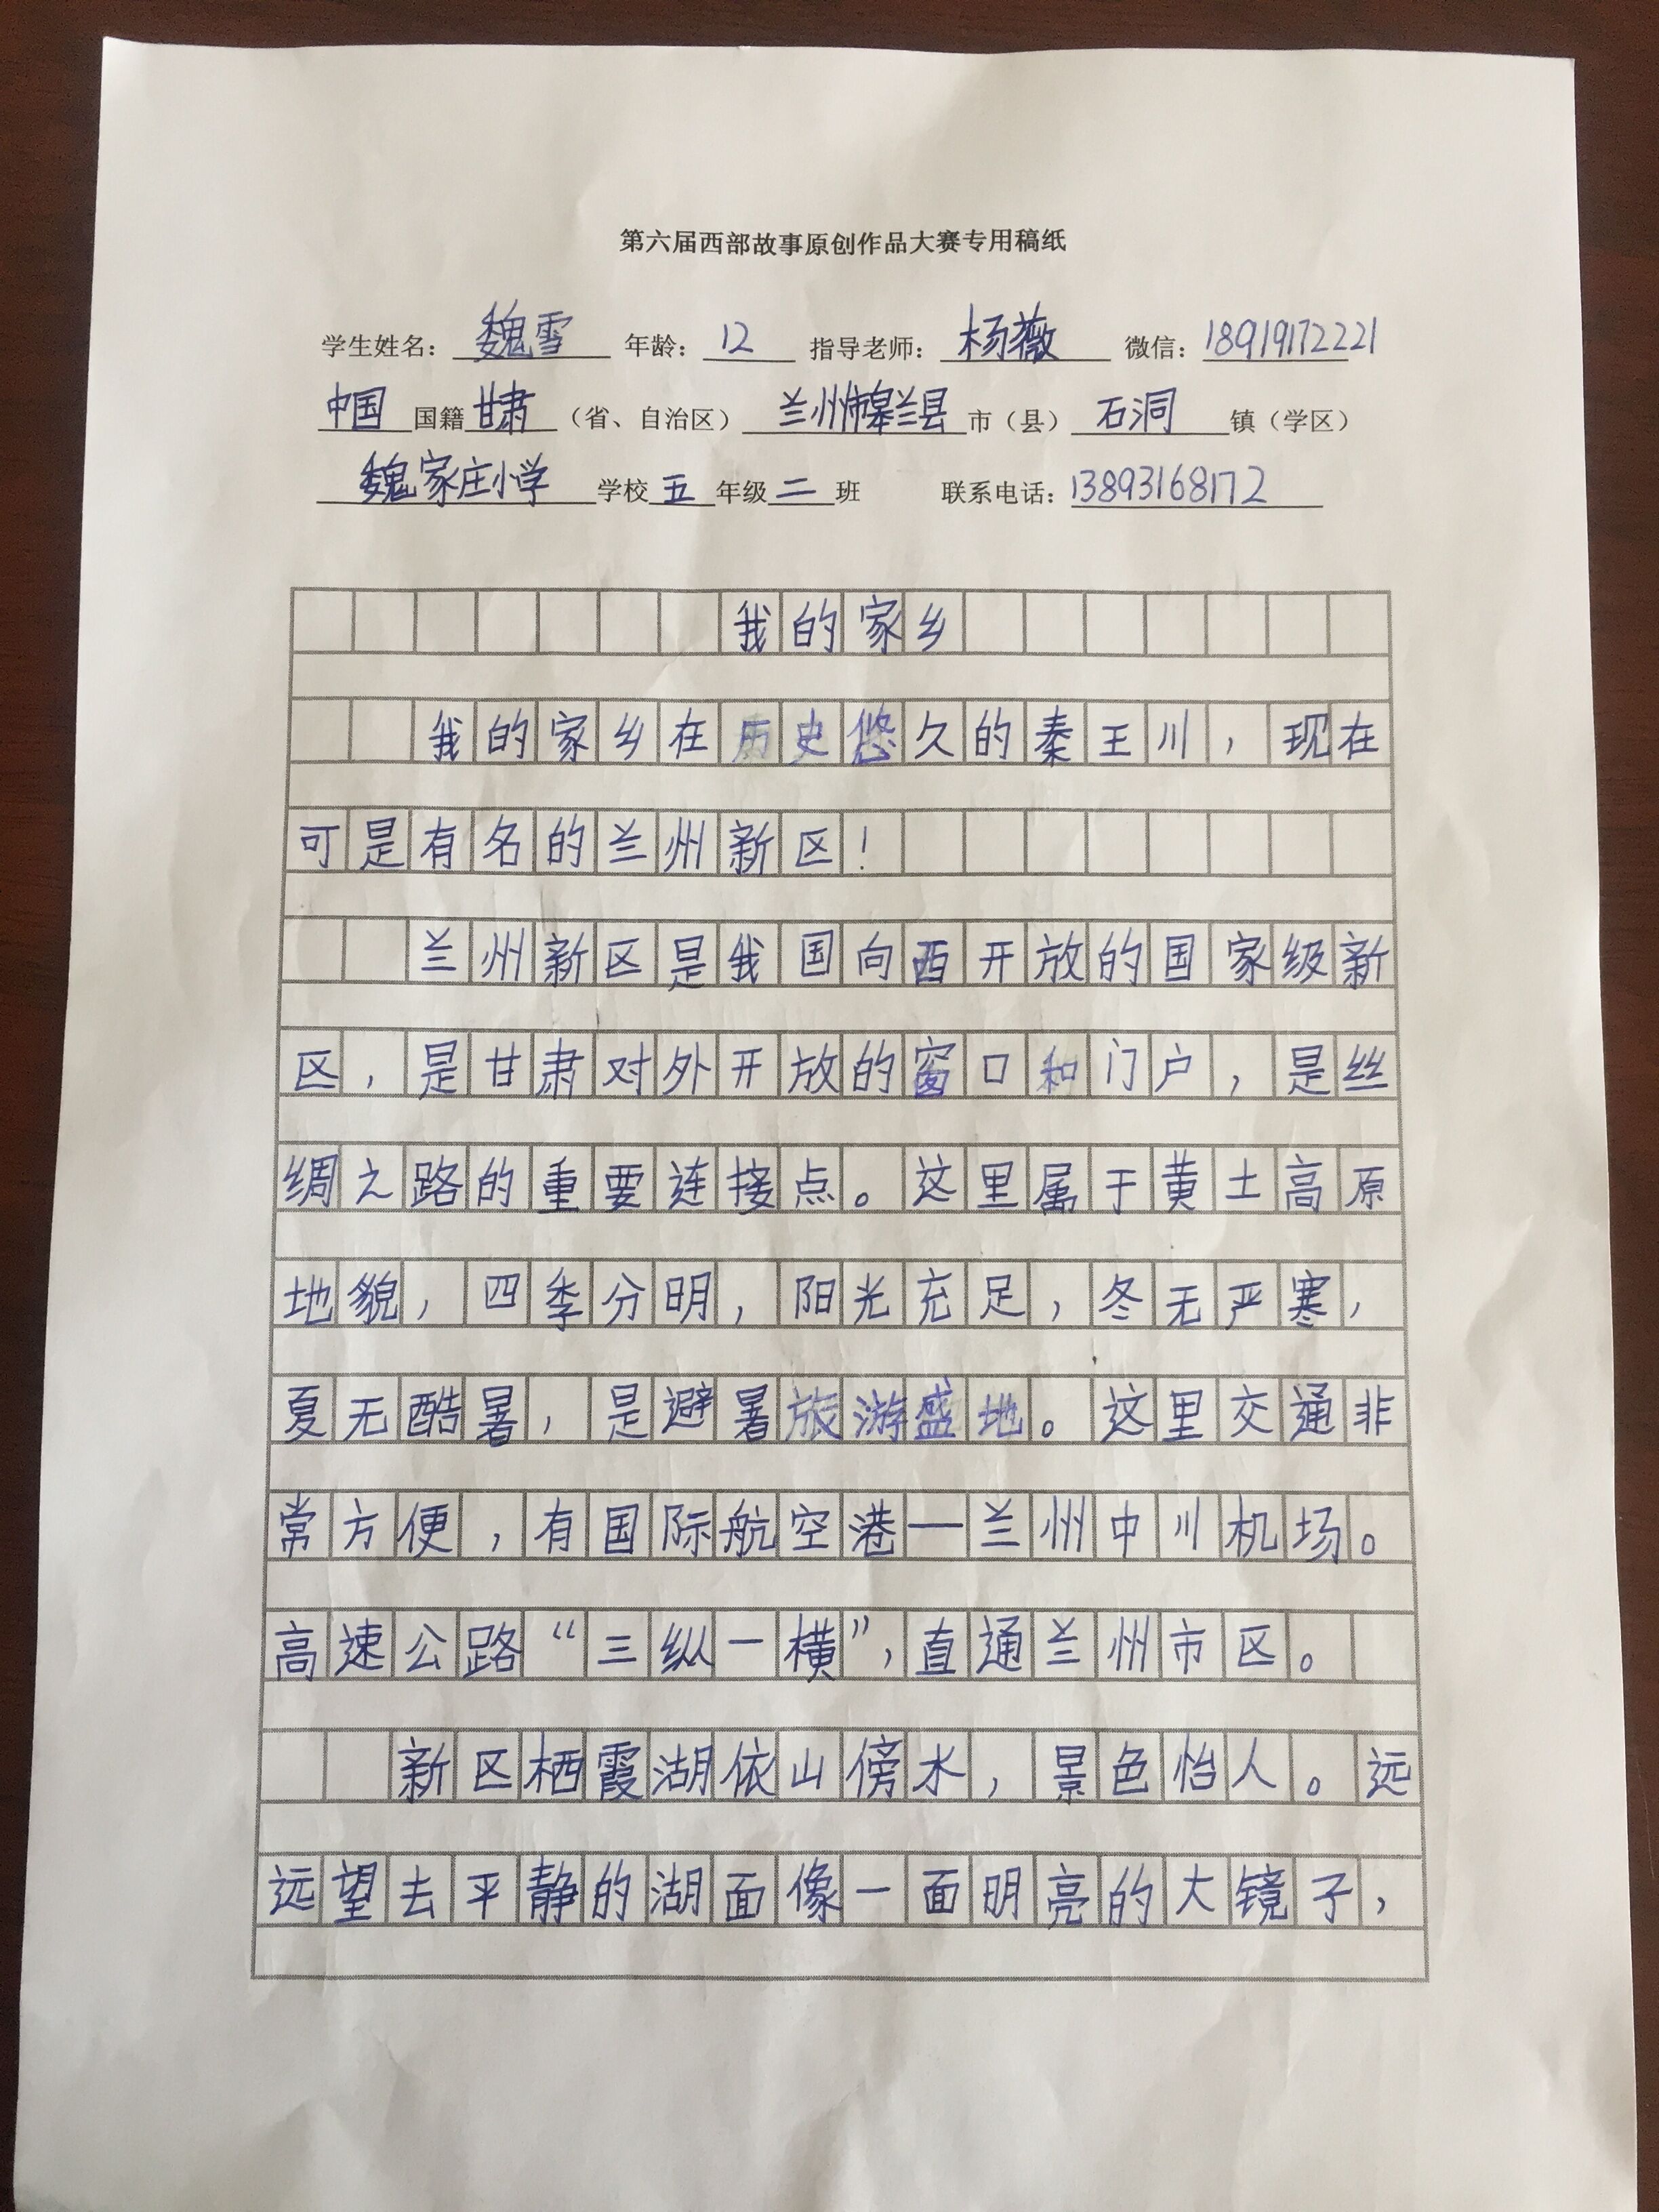 第六届西部故事原创作品大赛专用稿纸
学生姓名：魏雪 年龄：12 指导老师：杨薇 微信：18919172221
中国国籍甘肃（省、自治区）兰州市皋兰县市（县）石洞镇（学区）
魏家庄小学学校五年级二班 联系电话：13893168172
我的家乡
我的家乡在历史悠久的秦王川，现在
可是有名的兰州新区！
兰州新区是我国向西开放的国家级新
区，是甘肃对外开放的窗口和门户，是丝
绸之路的重要连接点。这里属于黄土高原
地貌，四季分明，阳光充足，冬无严寒，
夏无酷暑，是避暑旅游盛地。这里交通非
常方便，有国际航空港—兰州中川机场。
高速公路“三纵一横”，直通兰州市区。
新区栖霞湖依山傍水，景色怡人。远
远望去平静的湖面像一面明亮的大镜子，